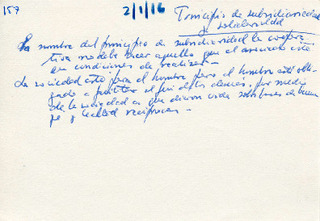 157
2/1/16
Principio de subsidiariedad
y solidaridad
En nombre del principio de subsidiaridad la coopera-
tiva no debe hacer aquello que el asociado está
en condiciones de realizar.
La sociedad está para el hombre pero el hombre está obli-
gado a facilitar el fin de los demás, por medio
de la sociedad a que dieron vida sobre bases de buena
fe y lealtad recíprocas.